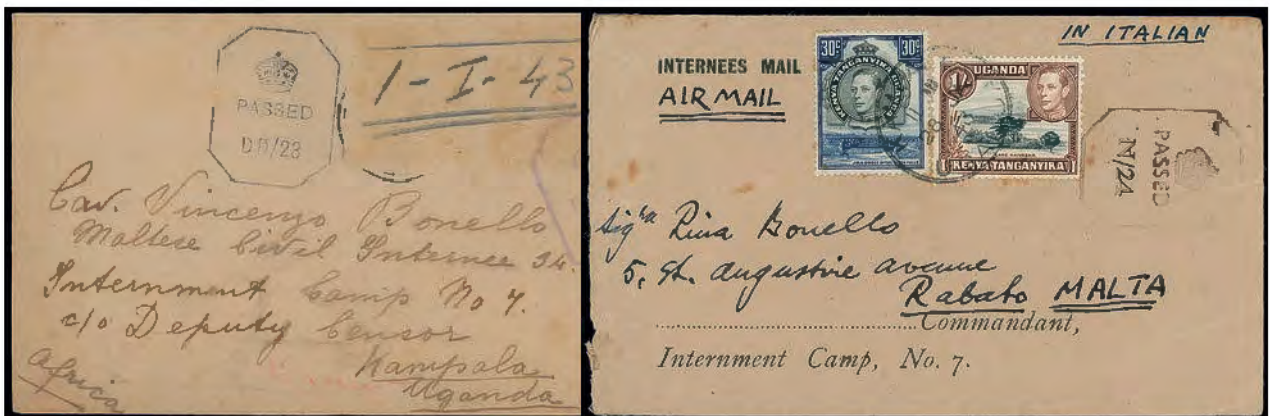 PASSED
DD/23
1-I-43
Cav. Vincenzo Bonello
Maltese Civil Internee 34.
Internment Camp No 7.
c/o Deputy Censor
Kampala
Uganda
Africa
IN ITALIAN
INTERNEES MAIL
AIR MAIL
30c 30c
KENYA TANGANYIKA UGANDA
1/- UGANDA
KENYA TANGANYIKA 1
PASSED
N/24
Sigra Lina Bonello
5, St. Augustine avenue
Rabato MALTA
Commandant,
Internment Camp, No. 7.